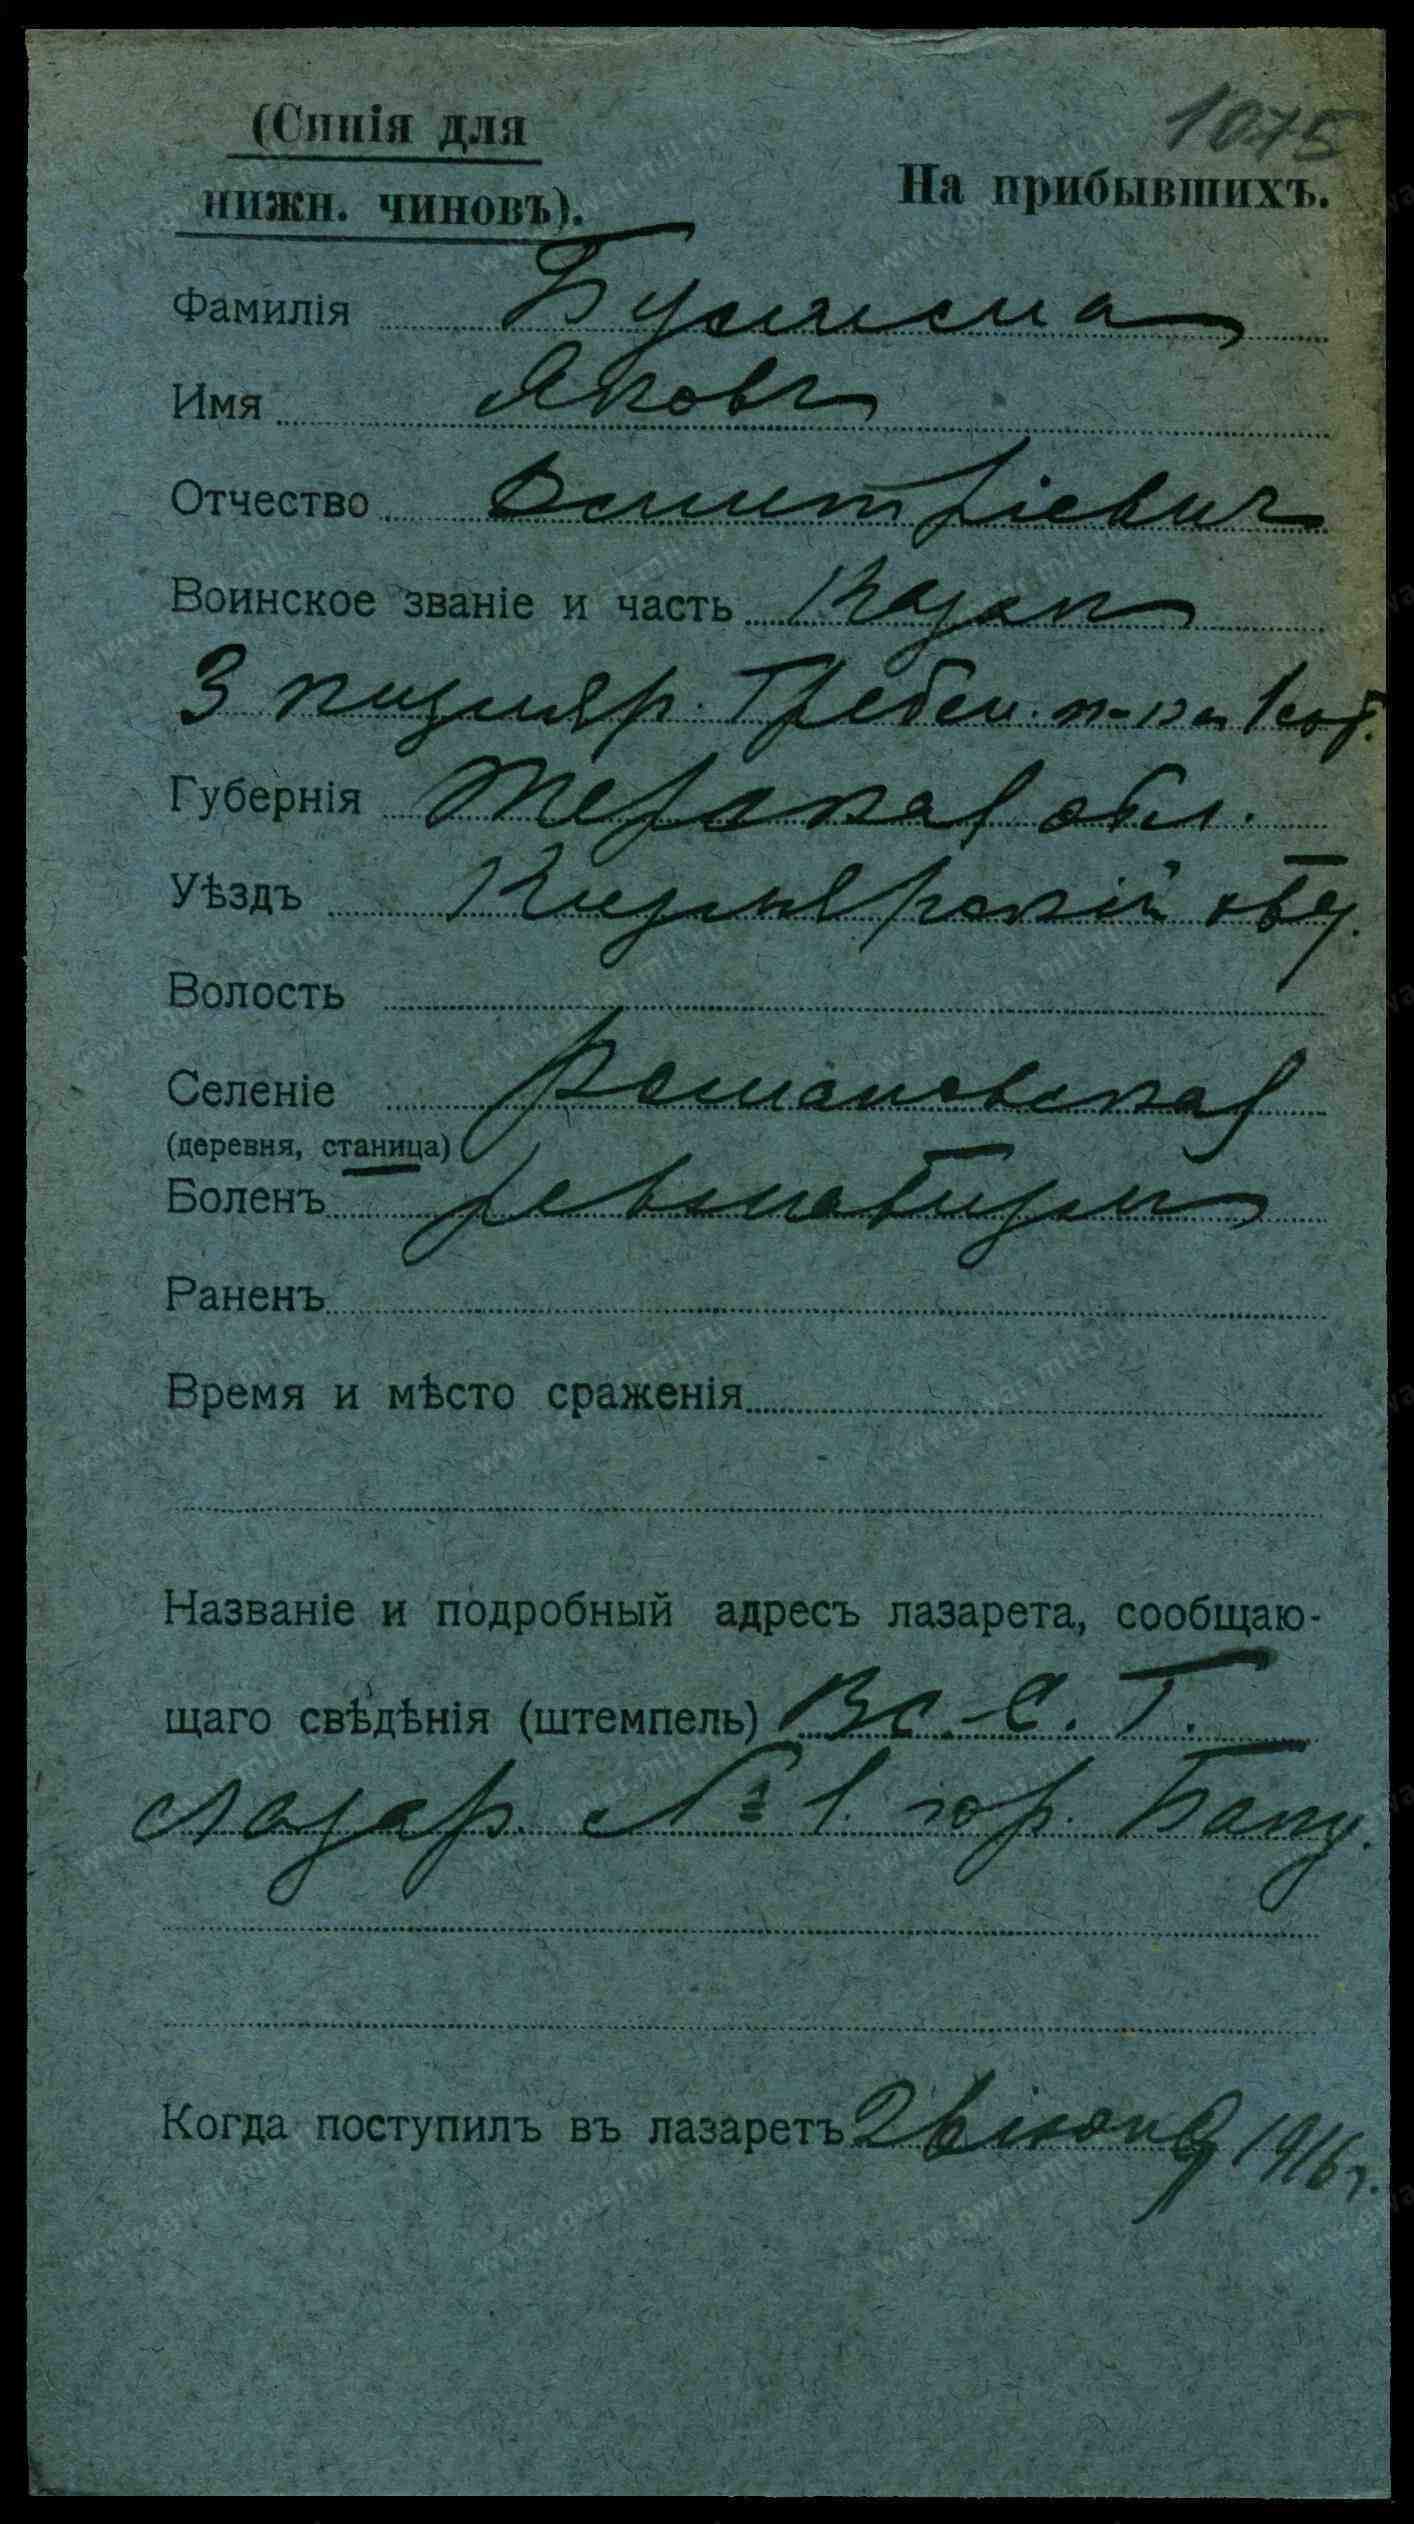 1075
(Синія для
нижн. чиновъ).
На прибывшихъ.
Фамилія
Имя Яковъ
Отчество Дмитріевич
Воинское званіе и часть Казак
3 Кизляр. Гребен. п-ка 1 сот.
Губернія Терская обл.
Уѣздъ Кизлярскій отд.
Волость
Селеніе Романовская
(деревня, станица)
Боленъ ревматизм
Раненъ
Время и мѣсто сраженія
Названіе и подробный адресъ лазарета, сообщаю-
щаго свѣдѣнія (штемпель) Вс. С. Г.
Лазар. № 1. гор. Баку.
Когда поступилъ въ лазаретъ 26 1916 г.